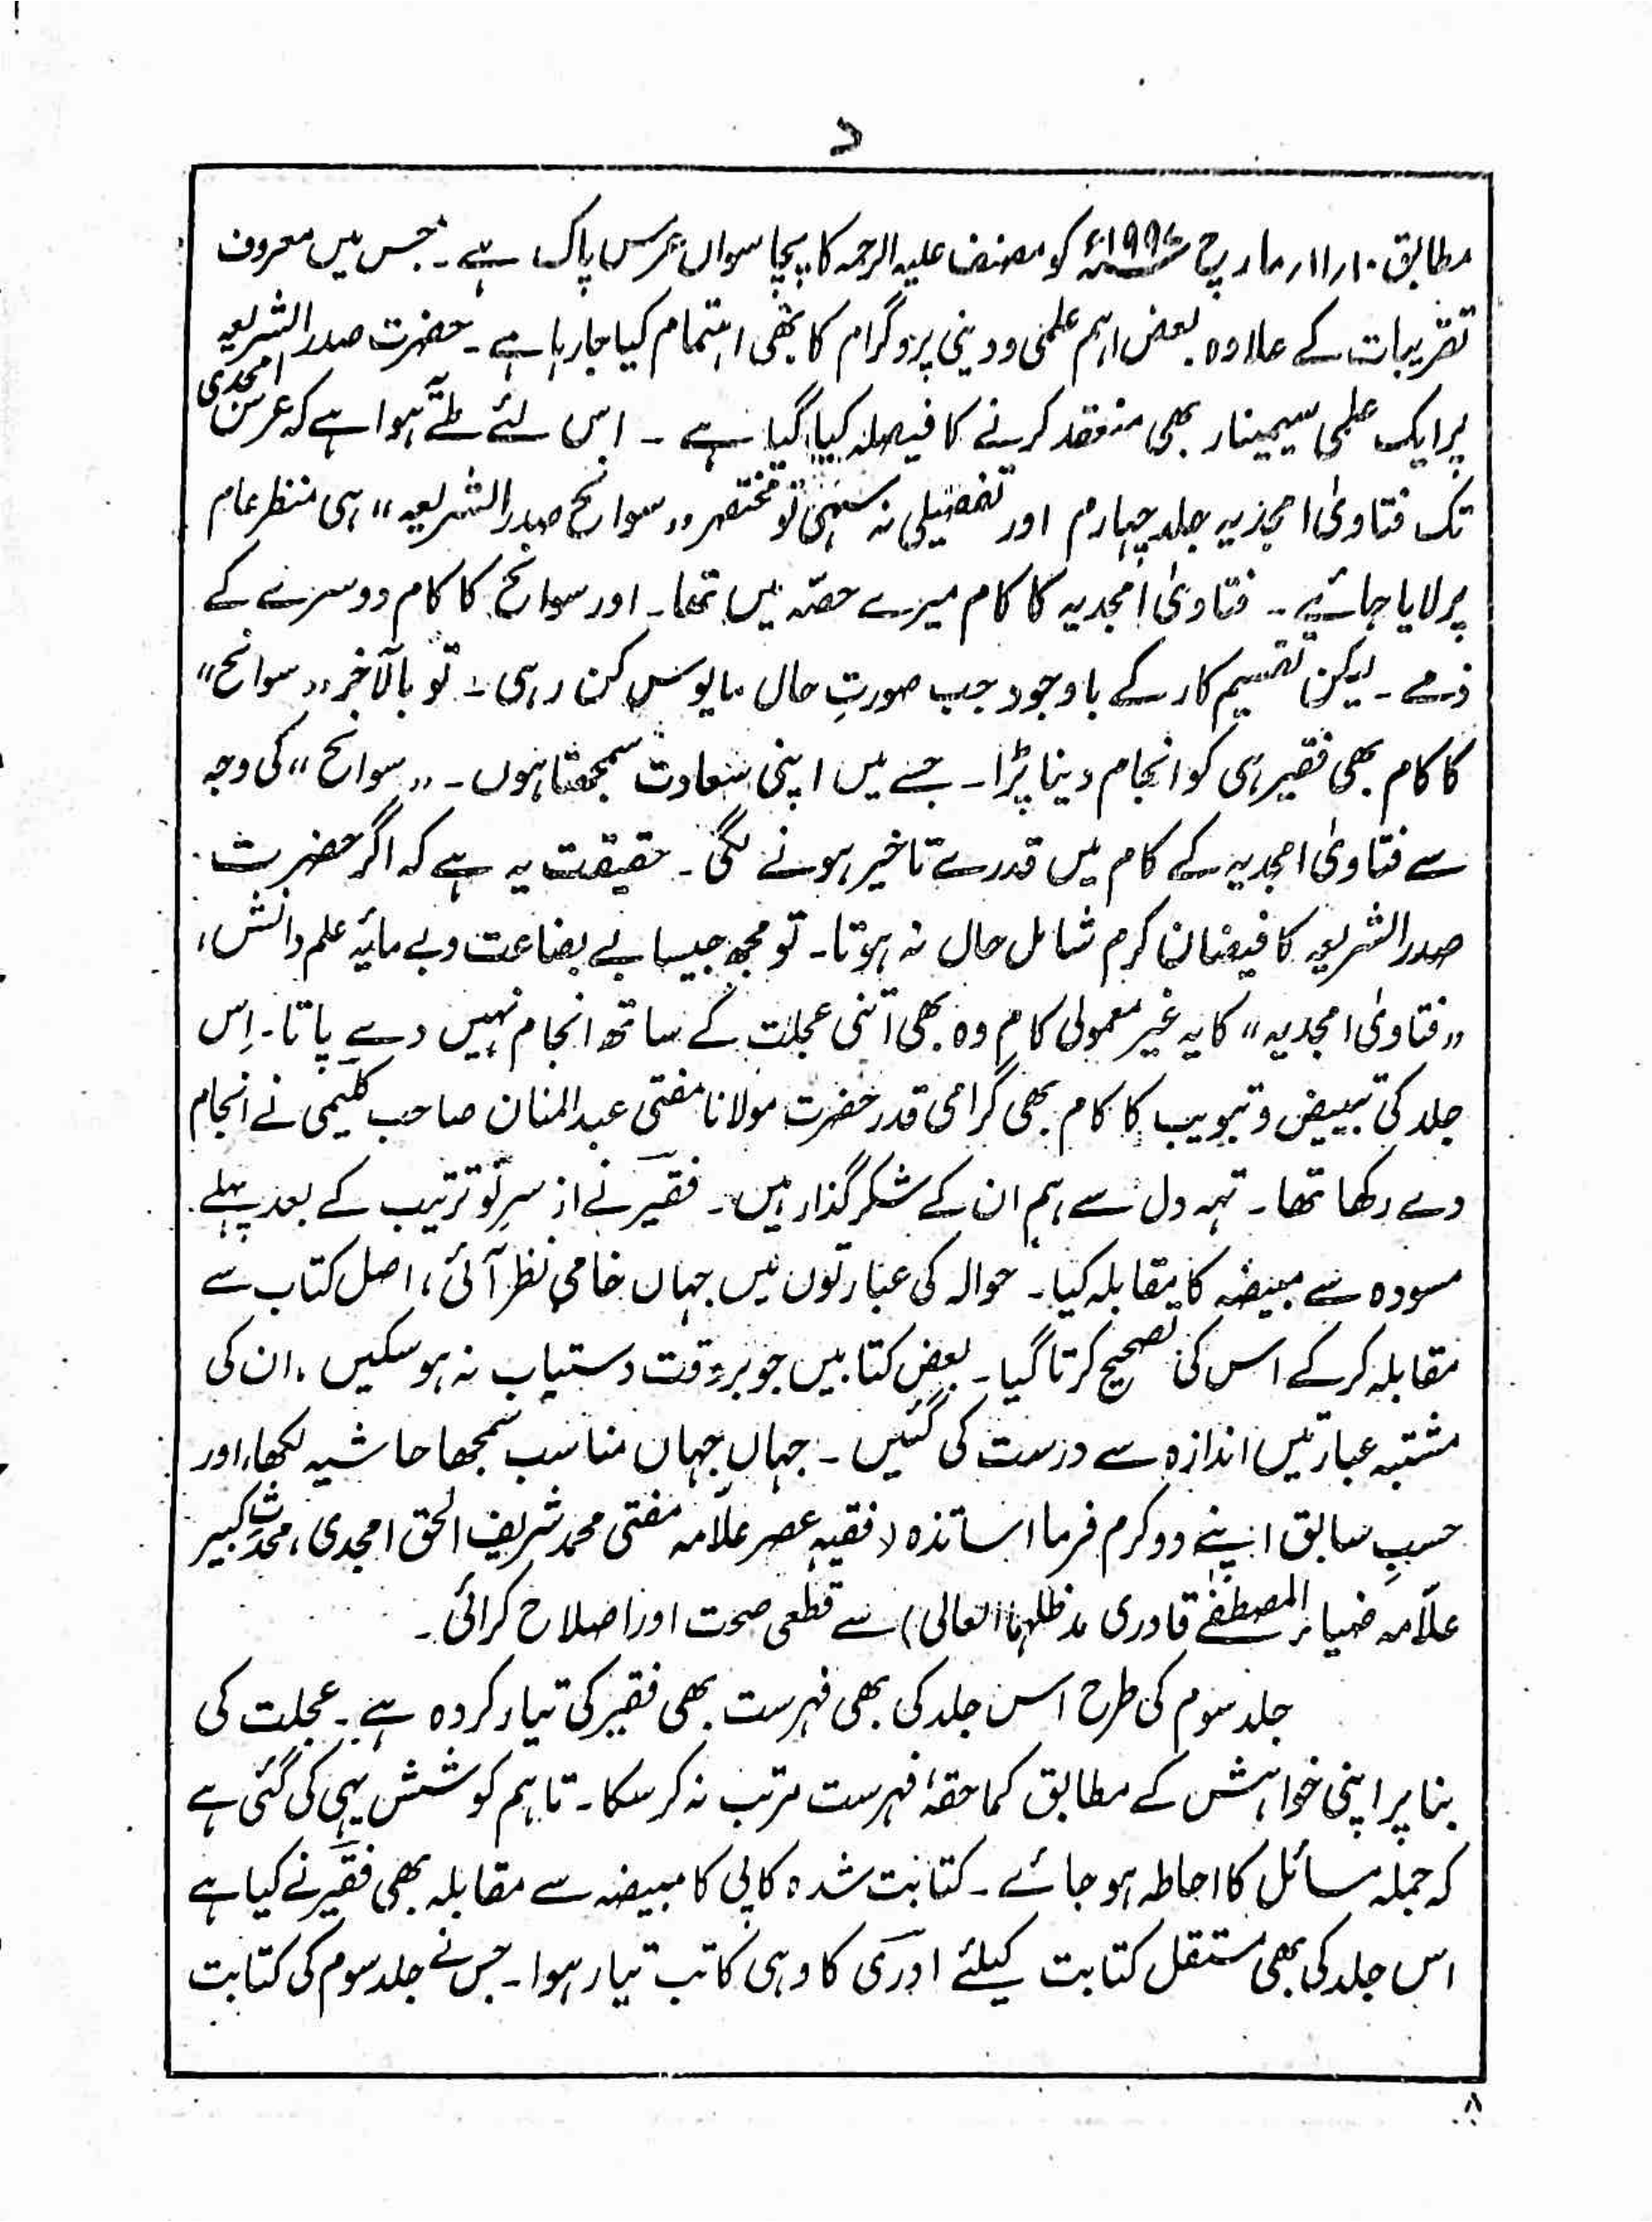 د
مطابق ۱۰ر۱۱ر مارچ ۱۹۹۷ء کو مصنف علیہ الرحمہ کا پچاسواں عرس پاک ہے۔ جس میں معروف
تقریبات کے علاوہ بعض اہم علمی و دینی پروگرام کا بھی اہتمام کیا جارہا ہے۔ حضرت صدر الشریعہ
پر ایک علمی سیمینار بھی منعقد کرنے کا فیصلہ کیا گیا ہے۔ اس لئے طے ہوا ہے کہ عرس امجدی
تک فتاویٰ امجدیہ جلد چہارم اور تفصیلی نہ سہی تو مختصر ،، سوانح صدر الشریعہ ،، ہی منظر عام
پر لایا جائے۔ فتاویٰ امجدیہ کا کام میرے حصّہ میں تھا۔ اور سوانح کا کام دوسرے کے
ذمے۔ لیکن تقسیم کار کے باوجود جب صورتِ حال مایوس کن رہی۔ تو بالآخر ،، سوانح ،،
کا کام بھی فقیر ہی کو انجام دینا پڑا۔ جسے میں اپنی سعادت سمجھتا ہوں۔ ،، سوانح ،، کی وجہ
سے فتاویٰ امجدیہ کے کام میں قدرے تاخیر ہونے لگی۔ حقیقت یہ ہے کہ اگر حضرت
صدر الشریعہ کا فیضان کرم شامل حال نہ ہوتا۔ تو مجھ جیسا بے بضاعت و بے مائیہ علم و دانش،
،، فتاویٰ امجدیہ ،، کا یہ غیر معمولی کام وہ بھی اتنی عجلت کے ساتھ انجام نہیں دے پاتا۔ اِس
جلد کی تبییض و تبویب کا کام بھی گرامی قدر حضرت مولانا مفتی عبد المنان صاحب کلیمی نے انجام
دے رکھا تھا۔ تہہ دل سے ہم ان کے شکر گذار ہیں۔ فقیر نے از سرِ نو ترتیب کے بعد پہلے
مسودہ سے مبیضہ کا مقابلہ کیا۔ حوالہ کی عبارتوں میں جہاں خامی نظر آئی، اصل کتاب سے
مقابلہ کرکے اس کی تصحیح کرتا گیا۔ بعض کتابیں جو بر وقت دستیاب نہ ہو سکیں، ان کی
مشتبہ عبارتیں اندازہ سے درست کی گئیں۔ جہاں جہاں مناسب سمجھا حاشیہ لکھا، اور
حسبِ سابق اپنے دو کرم فرما اساتذہ (فقیہ عصر علاّمہ مفتی محمد شریف الحق امجدی، محدث کبیر
علاّمہ ضیاء المصطفےٰ قادری مدظلہما العالی) سے قطعی صحت اور اصلاح کرائی۔
جلد سوم کی طرح اس جلد کی بھی فہرست بھی فقیر کی تیار کردہ ہے۔ عجلت کی
بنا پر اپنی خواہش کے مطابق کما حقہٗ فہرست مرتب نہ کر سکا۔ تاہم کوشش یہی کی گئی ہے
کہ جملہ مسائل کا احاطہ ہو جائے۔ کتابت شدہ کاپی کا مبیضہ سے مقابلہ بھی فقیر نے کیا ہے
اس جلد کی بھی مستقل کتابت کیلئے ادری کا وہی کاتب تیار ہوا۔ جس نے جلد سوم کی کتابت
۸